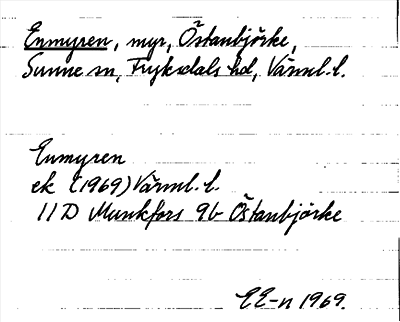 Enmyren, myr, Östanbjörke,
Sunne sn, Fryksdals hd, Värml. l.
Enmyren
ek (1969) Värml. l.
11D Munkfors 9b Östanbjörke
EE-n 1969.